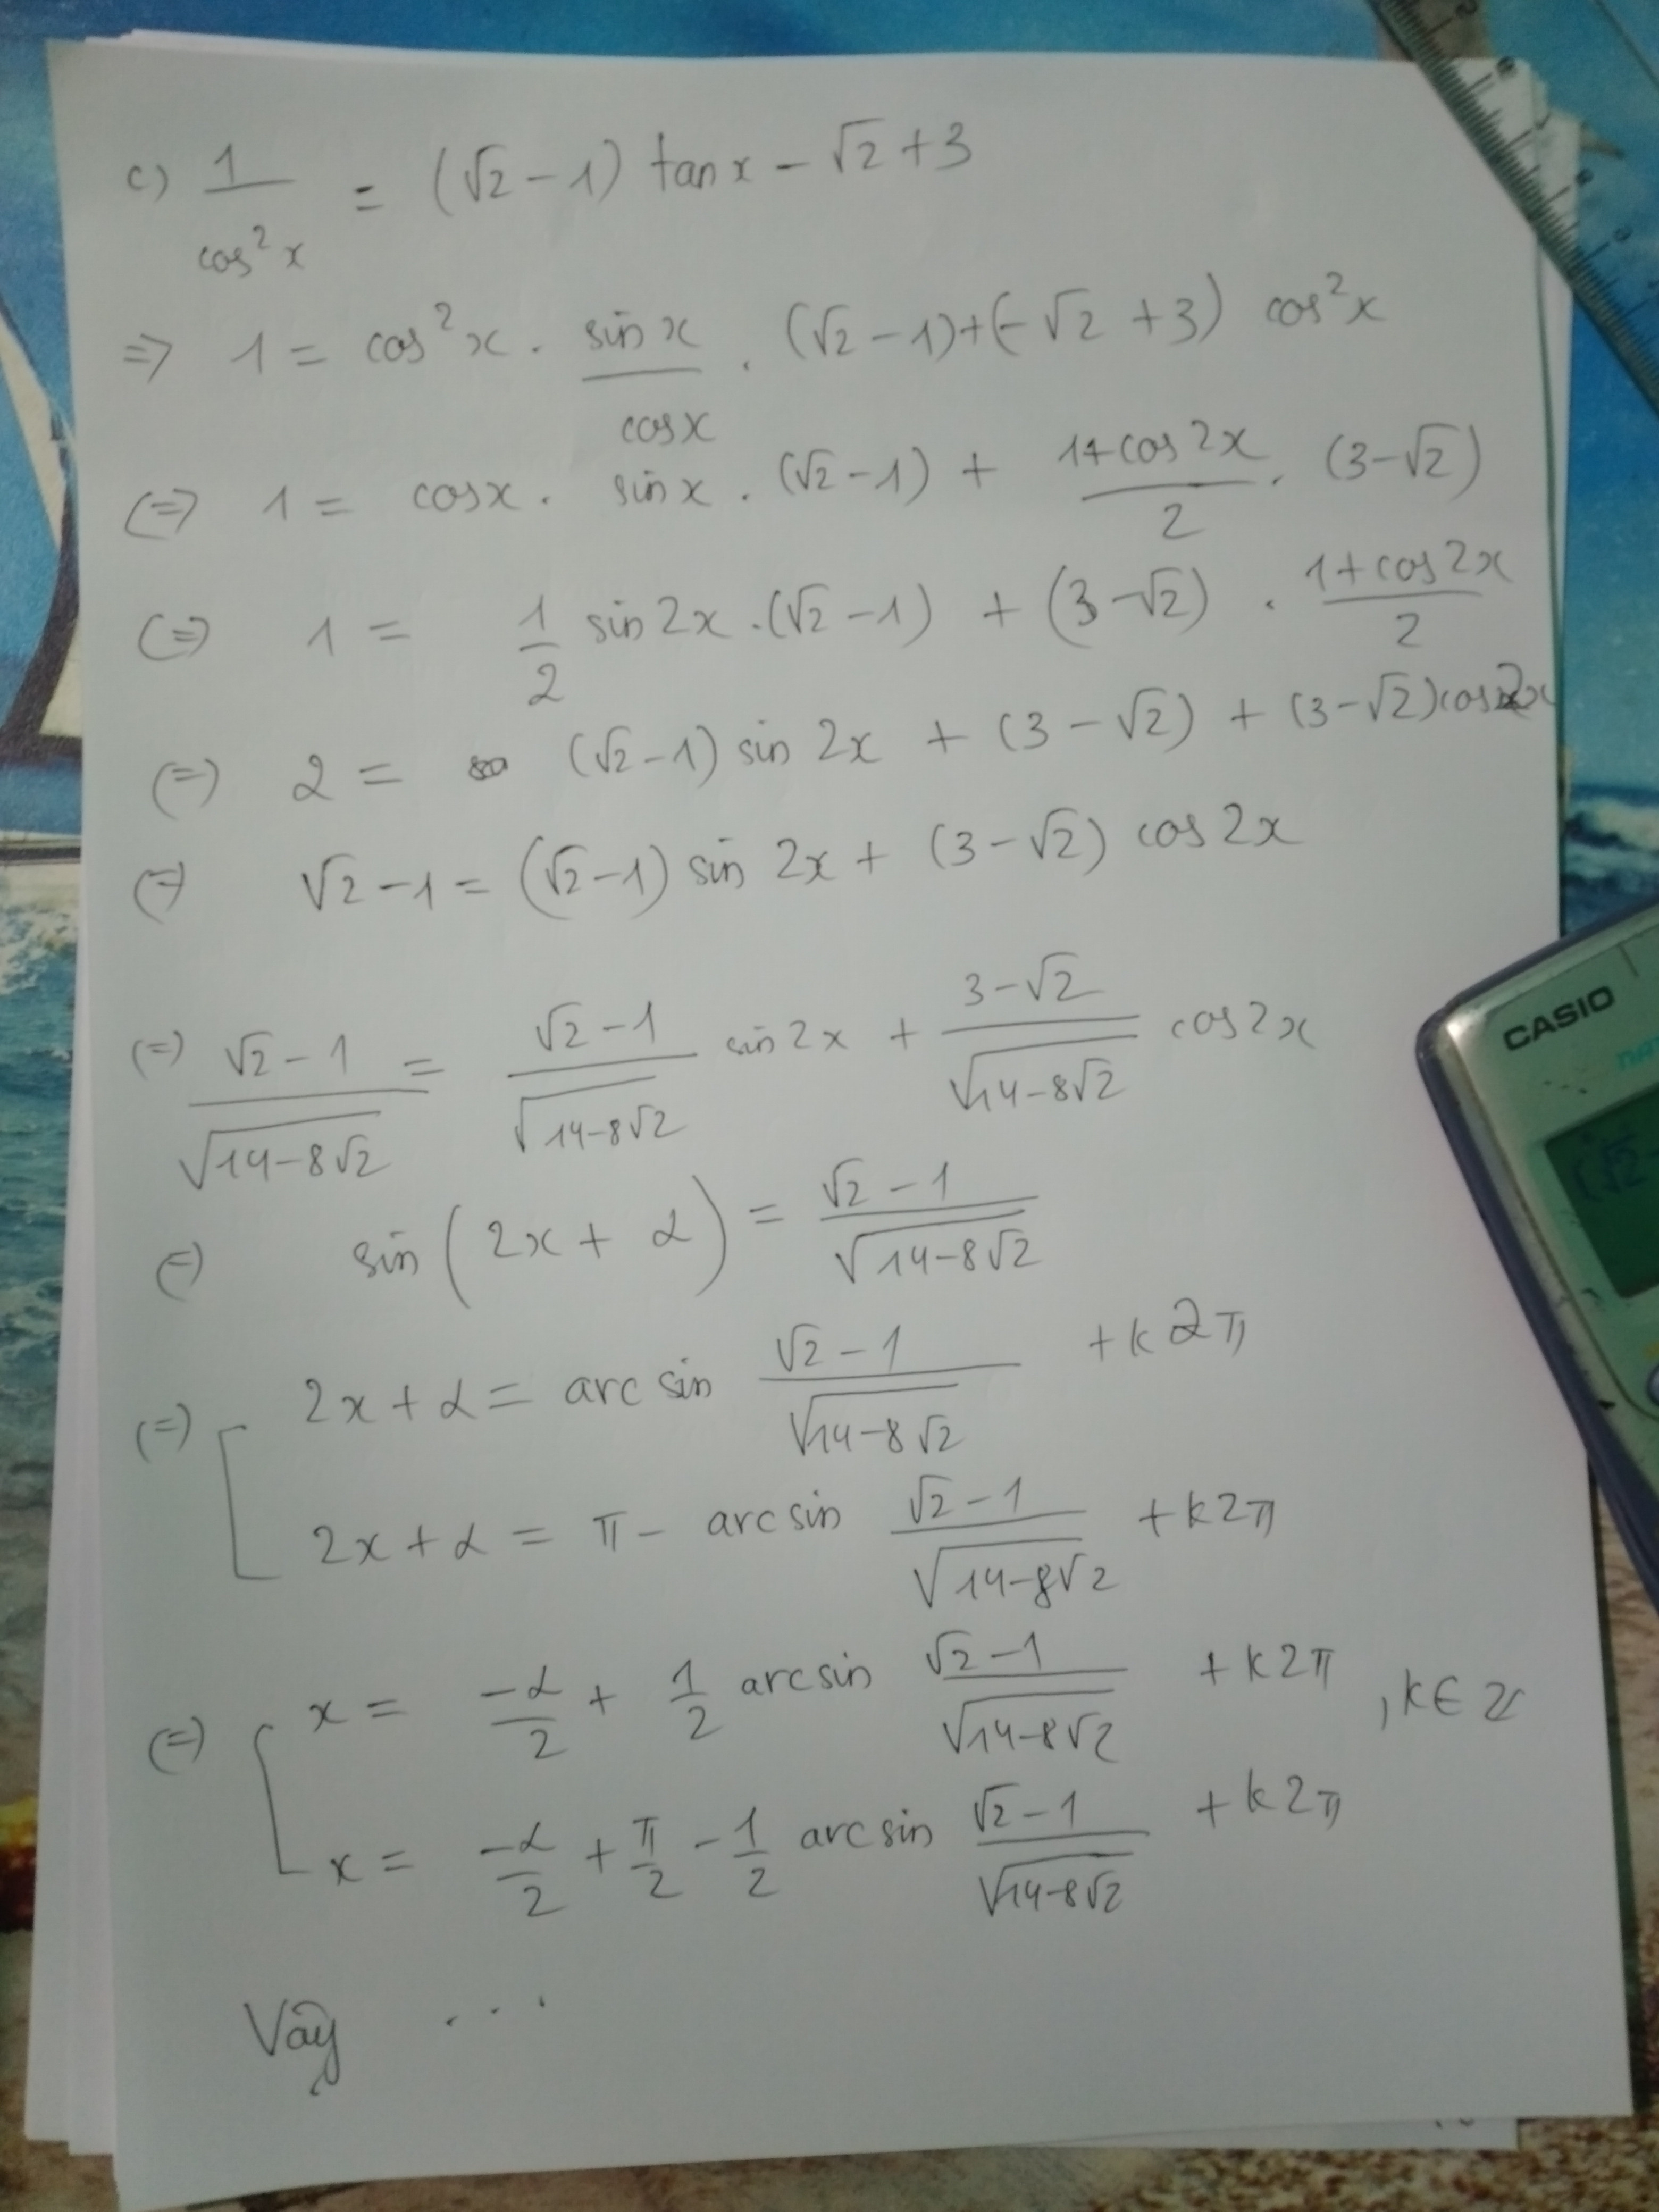 c) 1/cos²x = (√2 - 1) tan x - √2 + 3
=> 1 = cos²x . sin x/cos x . (√2 - 1) + (-√2 + 3) cos²x
(=) 1 = cos x . sin x . (√2 - 1) + (1 + cos 2x)/2 . (3 - √2)
(=) 1 = 1/2 sin 2x . (√2 - 1) + (3 - √2) . (1 + cos 2x)/2
(=) 2 = (√2 - 1) sin 2x + (3 - √2) + (3 - √2) cos 2x
(=) √2 - 1 = (√2 - 1) sin 2x + (3 - √2) cos 2x
(=) (√2 - 1)/√(14 - 8√2) = (√2 - 1)/√(14 - 8√2) sin 2x + (3 - √2)/√(14 - 8√2) cos 2x
(=) sin (2x + α) = (√2 - 1)/√(14 - 8√2)
(=) [ 2x + α = arc sin (√2 - 1)/√(14 - 8√2) + k2π
2x + α = π - arc sin (√2 - 1)/√(14 - 8√2) + k2π
(=) [ x = -α/2 + 1/2 arc sin (√2 - 1)/√(14 - 8√2) + k2π , k ∈ Z
x = -α/2 + π/2 - 1/2 arc sin (√2 - 1)/√(14 - 8√2) + k2π
Vậy ...
CASIO